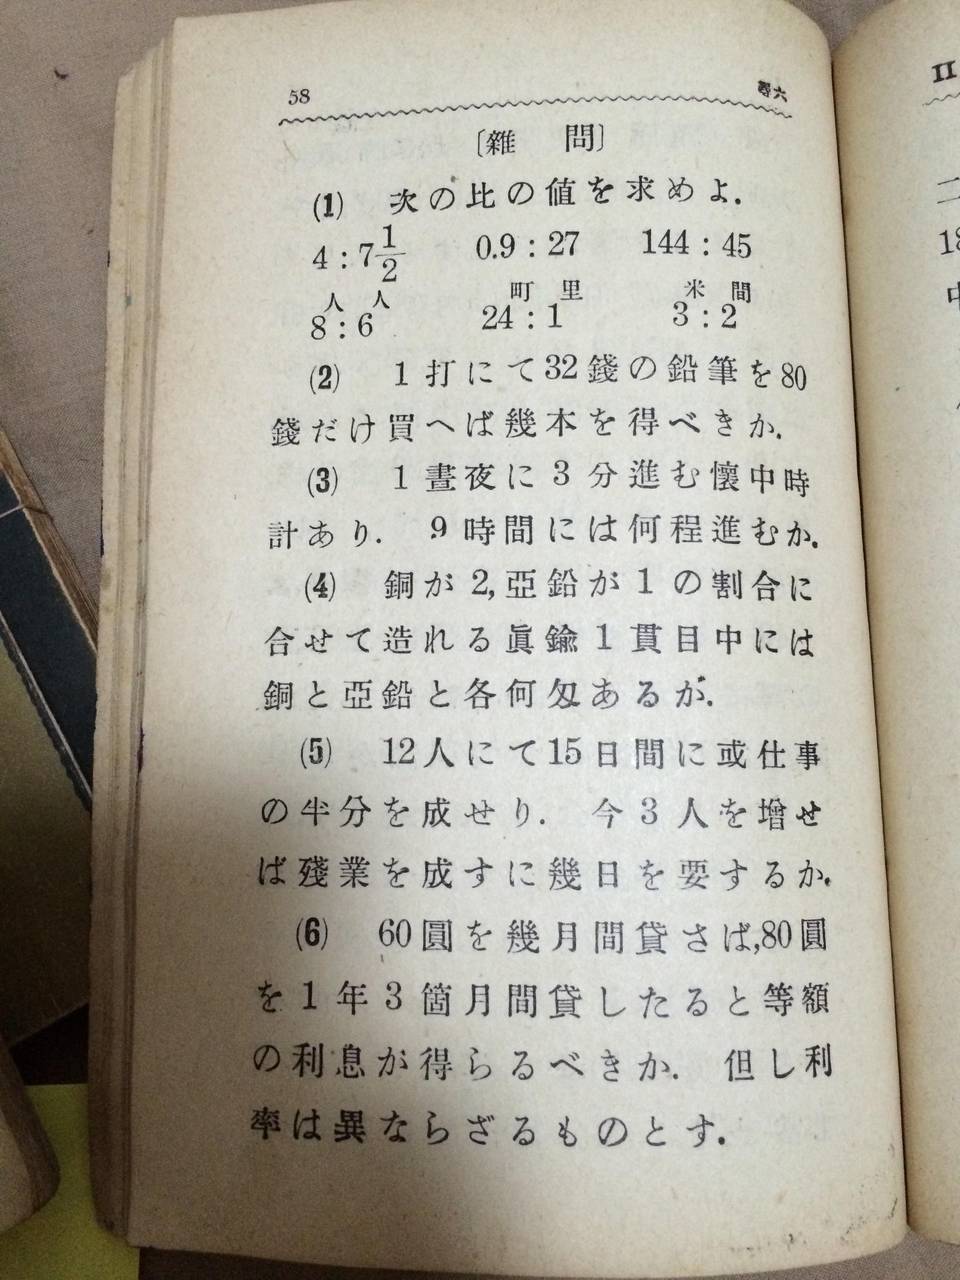 58
尋六
〔雜 問〕
(1) 次の比の値を求めよ.
4 : 7 1/2 0.9 : 27 144 : 45
人 人 町 里 米 間
8 : 6 24 : 1 3 : 2
(2) 1打にて32錢の鉛筆を80
錢だけ買へば幾本を得べきか.
(3) 1晝夜に3分進む懷中時
計あり. 9時間には何程進むか.
(4) 銅が2,亞鉛が1の割合に
合せて造れる眞鍮1貫目中には
銅と亞鉛と各何匁あるか.
(5) 12人にて15日間に或仕事
の半分を成せり. 今3人を增せ
ば殘業を成すに幾日を要するか.
(6) 60圓を幾月間貸さば,80圓
を1年3箇月間貸したると等額
の利息が得らるべきか. 但し利
率は異ならざるものとす.
II
二
18
中